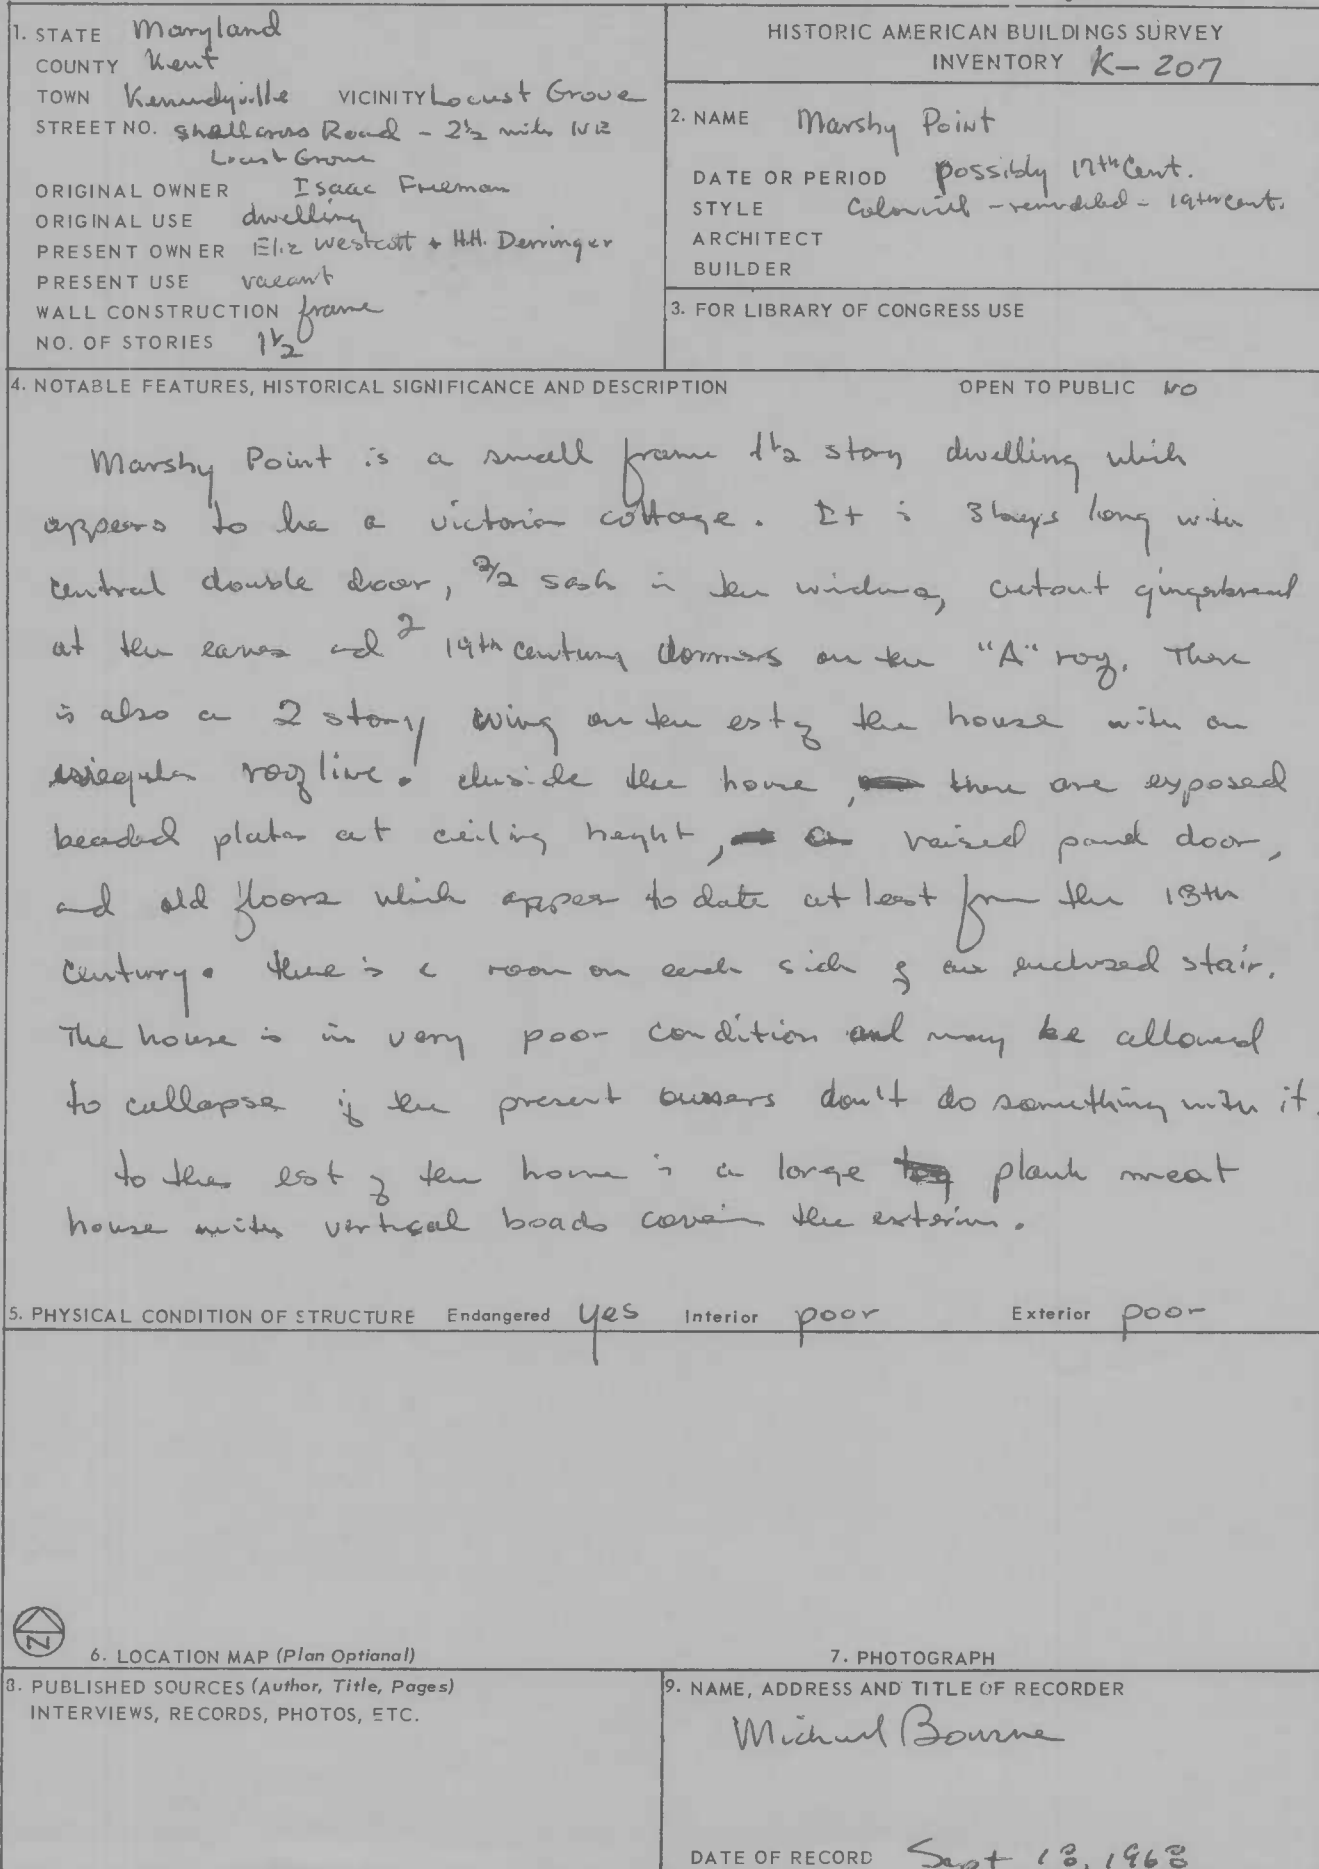 1. STATE Maryland
COUNTY Kent
TOWN Kennedyville VICINITY Locust Grove
STREET NO. Shallcross Road - 2½ miles NE
Locust Grove
ORIGINAL OWNER Isaac Freeman
ORIGINAL USE dwelling
PRESENT OWNER Eliz Westcott + H.H. Derringer
PRESENT USE vacant
WALL CONSTRUCTION frame
NO. OF STORIES 1½
HISTORIC AMERICAN BUILDINGS SURVEY
INVENTORY K-207
2. NAME Marshy Point
DATE OR PERIOD possibly 17th Cent.
STYLE Colonial - remodeled - 19th cent.
ARCHITECT
BUILDER
3. FOR LIBRARY OF CONGRESS USE
4. NOTABLE FEATURES, HISTORICAL SIGNIFICANCE AND DESCRIPTION OPEN TO PUBLIC NO
Marshy Point is a small frame 1½ story dwelling which
appears to be a victorian cottage. It is 3 bays long with
central double door, 2/2 sash in the windows, cutout gingerbread
at the eaves and 2 19th century dormers on the "A" roof. There
is also a 2 story wing on the est of the house with an
irregular roof line. Inside the house, there are exposed
beaded plates at ceiling height, a raised panel door,
and old floors which appear to date at least from the 18th
century. there is a room on each side of an enclosed stair.
The house is in very poor condition and may be allowed
to collapse if the present owners don't do something with it.
to the est of the house is a large plank meat
house with vertical boads coverin the exterior.
5. PHYSICAL CONDITION OF STRUCTURE Endangered yes Interior poor Exterior poor
N
6. LOCATION MAP (Plan Optional)
7. PHOTOGRAPH
8. PUBLISHED SOURCES (Author, Title, Pages)
INTERVIEWS, RECORDS, PHOTOS, ETC.
9. NAME, ADDRESS AND TITLE OF RECORDER
Michael Bourne
DATE OF RECORD Sept 18, 1968